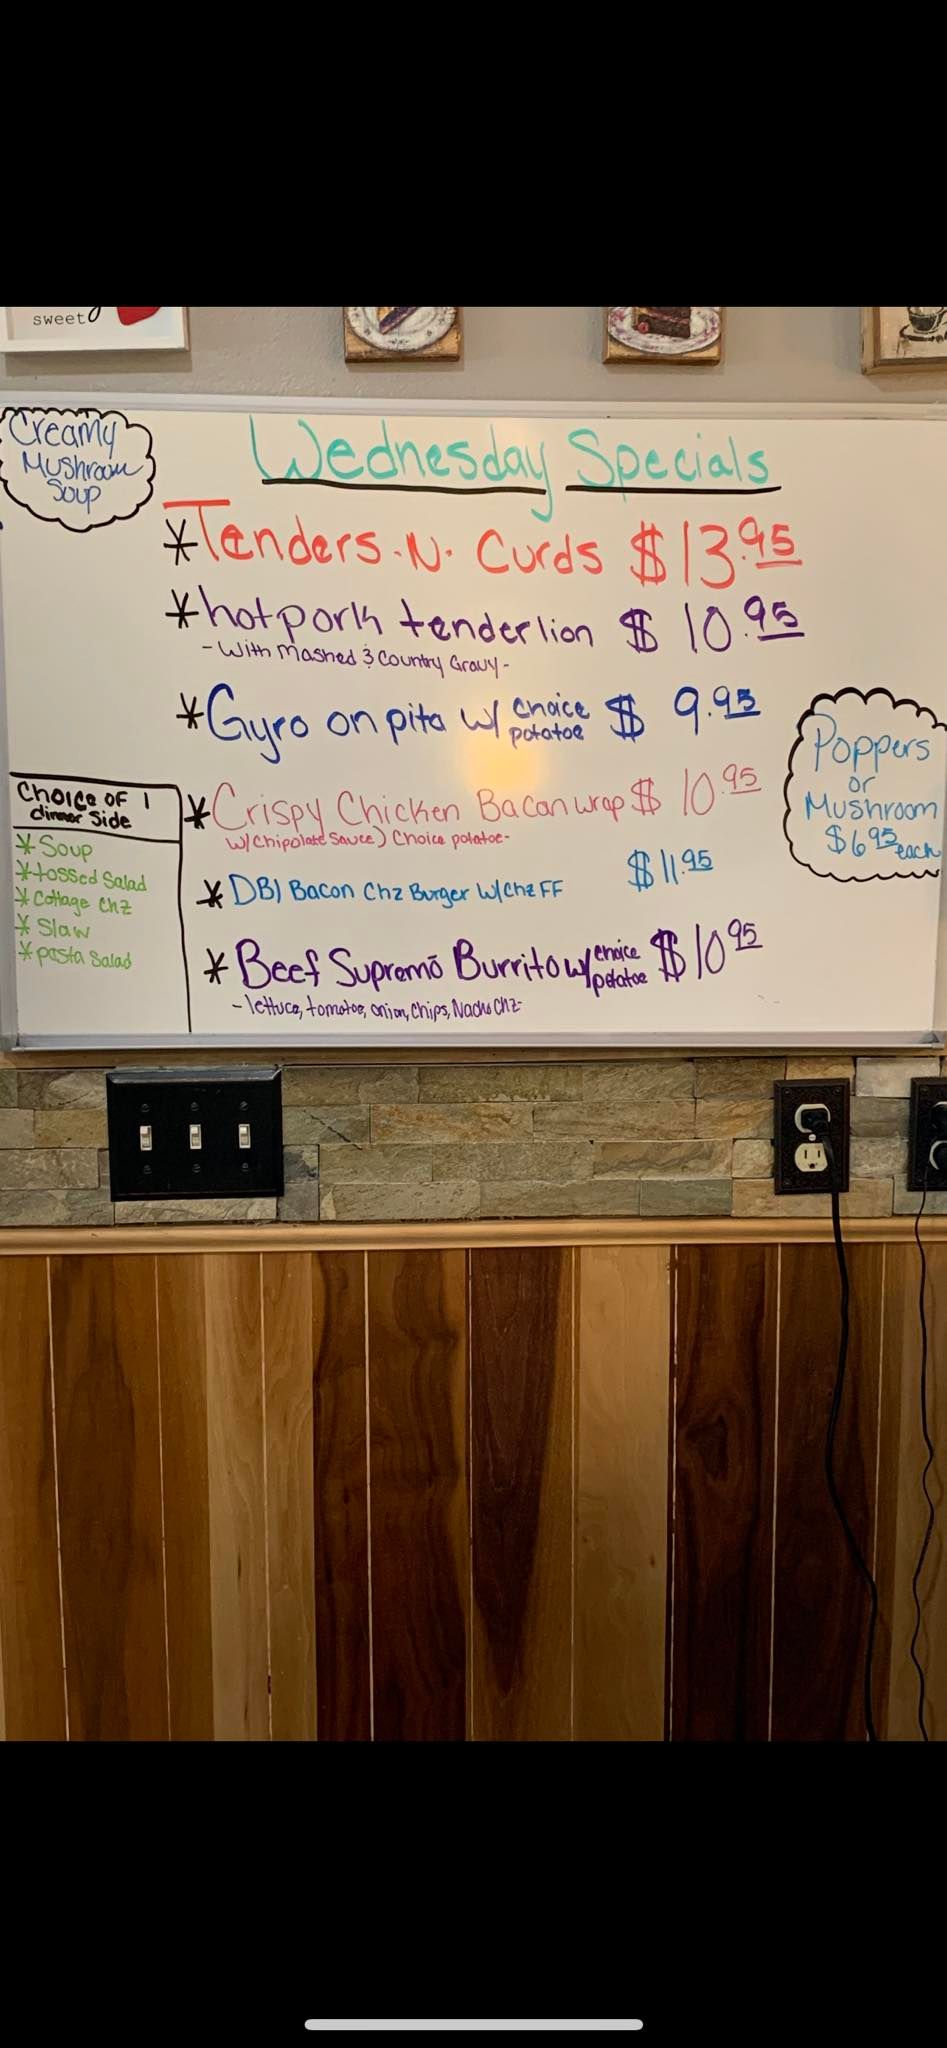 sweet
Creamy
Mushroom
Soup
Wednesday Specials
*Tenders.N. Curds $13.95
*hotpork tenderlion $10.95
-With Mashed & Country Gravy-
*Gyro on pita w/ choice potatoe $9.95
Poppers
or
Mushroom
$6.95 each
*Crispy Chicken Bacan wrap $10.95
w/Chipolate Sauce) Choice potatoe-
*DBl Bacon Chz Burger W/Chz FF $11.95
*Beef Supremō Burrito w/ choice potatoe $10.95
-lettuce, tomatoe, onion, Chips, Nacho Chz-
Choice OF 1
dinner Side
*Soup
*tossed Salad
*Cottage Chz
*Slaw
*pasta Salad